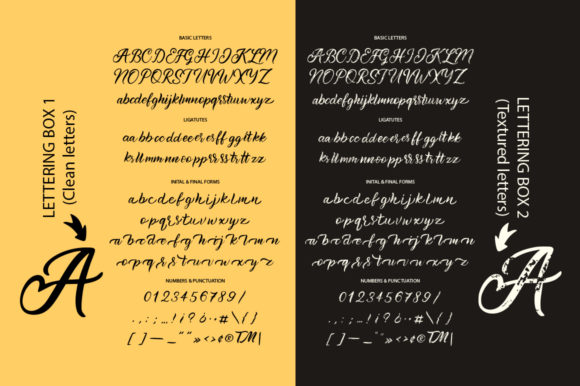 LETTERING BOX 1
(Clean letters)
A
BASIC LETTERS
ABCDEFGHIJKLM
NOPQRSTUVWXYZ
abcdefghijklmnopqrstuvwxyz
LIGATUTES
aa bb cc dd ee er ff gg it kk
kr ll mm nn oo pp rr ss tr tt zz
INITAL & FINAL FORMS
abcdefghijklmn
opqrstuvwxyz
abcdefghijklmn
opqrstuvwxyz
NUMBERS & PUNCTUATION
0123456789/
. , : ; ... ! ¡ ? ¿ # \ { }
[ ] — _ “ ” » < > ¢ ® TM |
BASIC LETTERS
ABCDEFGHIJKLM
NOPQRSTUVWXYZ
abcdefghijklmnopqrstuvwxyz
LIGATUTES
aa bb cc dd ee er ff gg it kk
kr ll mm nn oo pp rr ss tr tt zz
INITAL & FINAL FORMS
abcdefghijklmn
opqrstuvwxyz
abcdefghijklmn
opqrstuvwxyz
NUMBERS & PUNCTUATION
0123456789/
. , : ; ... ! ¡ ? ¿ # \ { }
[ ] — _ “ ” » < > ¢ ® TM |
LETTERING BOX 2
(Textured letters)
A